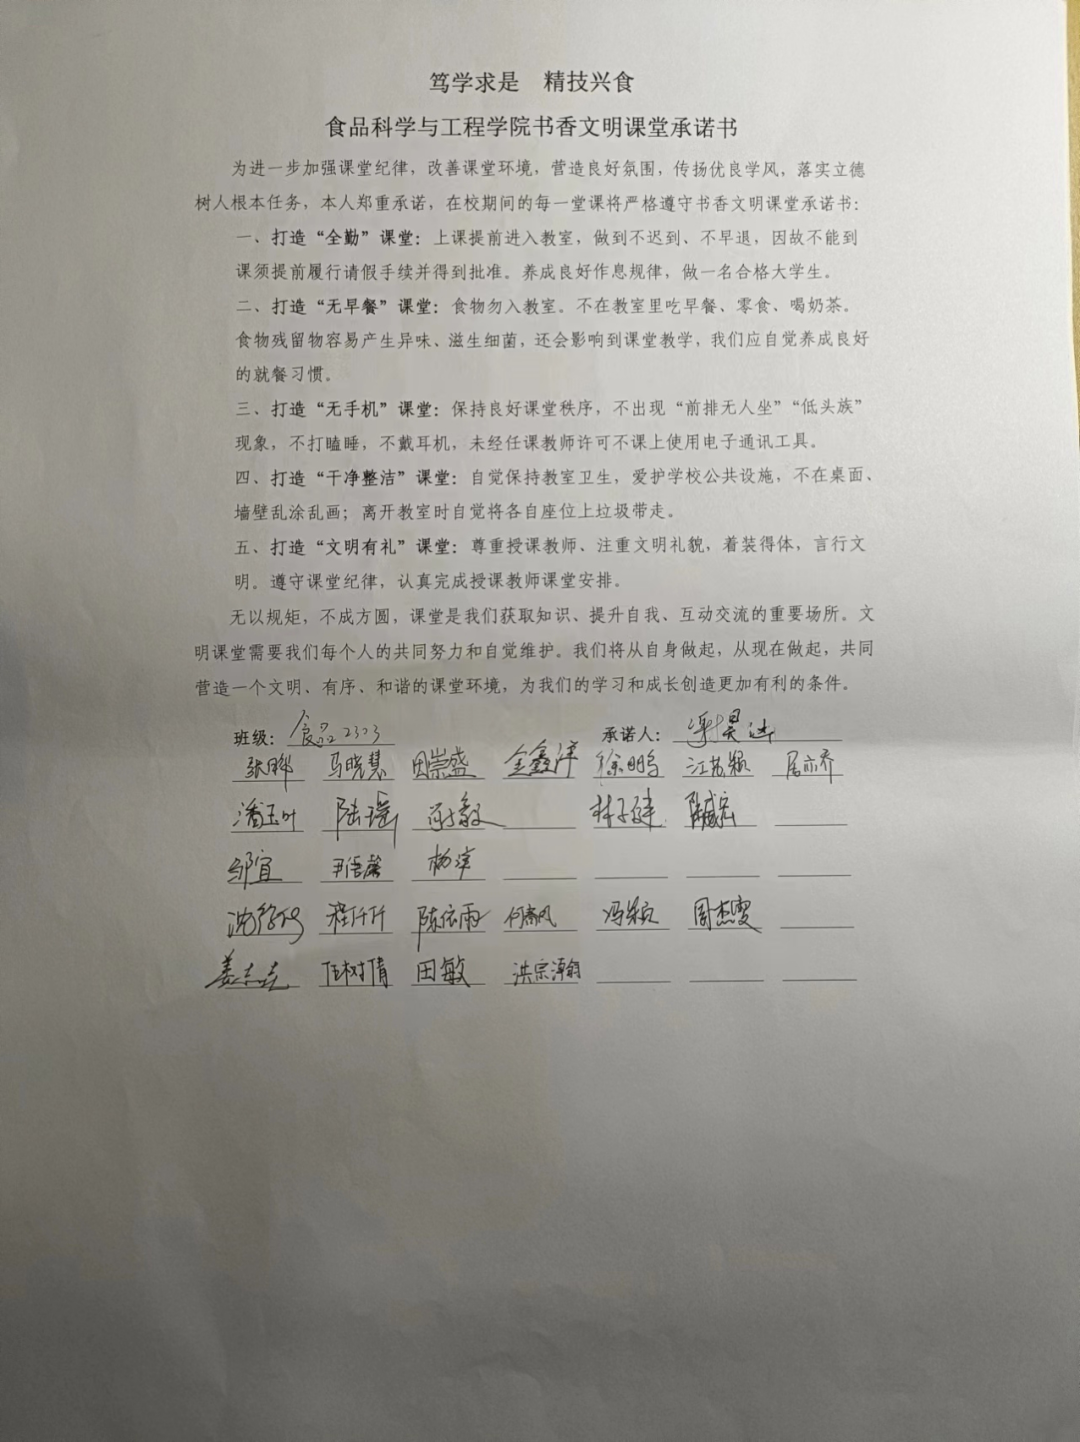 笃学求是　精技兴食
食品科学与工程学院书香文明课堂承诺书
为进一步加强课堂纪律，改善课堂环境，营造良好氛围，传扬优良学风，落实立德
树人根本任务，本人郑重承诺，在校期间的每一堂课将严格遵守书香文明课堂承诺书：
一、打造“全勤”课堂：上课提前进入教室，做到不迟到、不早退，因故不能到
课须提前履行请假手续并得到批准。养成良好作息规律，做一名合格大学生。
二、打造“无早餐”课堂：食物勿入教室。不在教室里吃早餐、零食、喝奶茶。
食物残留物容易产生异味、滋生细菌，还会影响到课堂教学，我们应自觉养成良好
的就餐习惯。
三、打造“无手机”课堂：保持良好课堂秩序，不出现“前排无人坐”“低头族”
现象，不打瞌睡，不戴耳机，未经任课教师许可不课上使用电子通讯工具。
四、打造“干净整洁”课堂：自觉保持教室卫生，爱护学校公共设施，不在桌面、
墙壁乱涂乱画；离开教室时自觉将各自座位上垃圾带走。
五、打造“文明有礼”课堂：尊重授课教师、注重文明礼貌，着装得体，言行文
明。遵守课堂纪律，认真完成授课教师课堂安排。
无以规矩，不成方圆，课堂是我们获取知识、提升自我、互动交流的重要场所。文
明课堂需要我们每个人的共同努力和自觉维护。我们将从自身做起，从现在做起，共同
营造一个文明、有序、和谐的课堂环境，为我们的学习和成长创造更加有利的条件。
班级：食品2323 承诺人：谢昊达
马晓慧 田崇盛 金鑫洋 徐明鸟 江苏颖 居亦乔
潘玉叶 陆瑶 林子健 陈威宏
邹宜 尹语馨 杨萍
程仟仟 陈依雨 何漪帆 冯颖 周杰雯
姜志克 任树倩 田敏 洪宗潭翰